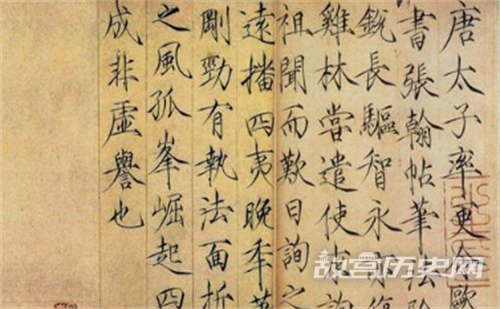 唐太子率更令歐
書張翰帖筆法險
銳長驅智永亦復
雞林嘗遣使求詢
祖聞而歎曰詢之
遠播四夷晚秊
剛勁有執法面折
之風孤峯崛起四
成非虛譽也
故宫历史网